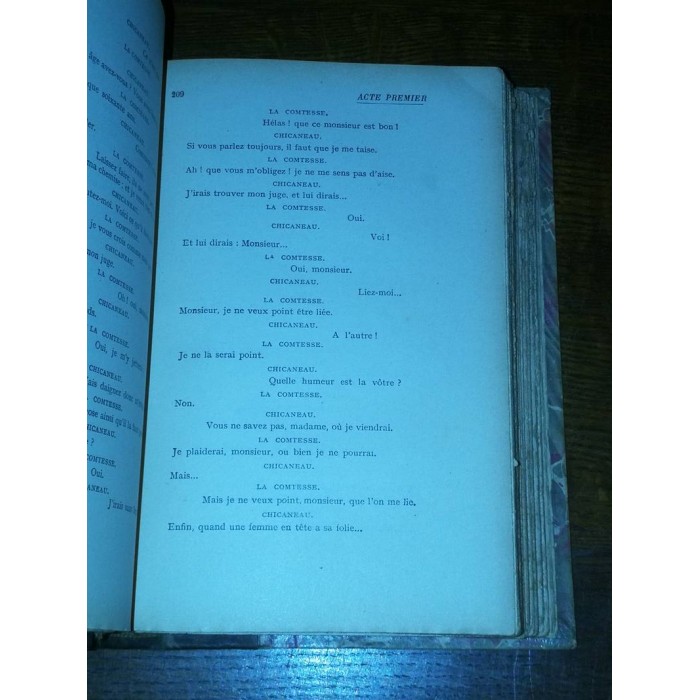 209 ACTE PREMIER
LA COMTESSE.
Hélas ! que ce monsieur est bon !
CHICANEAU.
Si vous parlez toujours, il faut que je me taise.
LA COMTESSE.
Ah ! que vous m'obligez ! je ne me sens pas d'aise.
CHICANEAU.
J'irais trouver mon juge, et lui dirais...
LA COMTESSE.
Oui.
CHICANEAU.
Voi !
Et lui dirais : Monsieur...
LA COMTESSE.
Oui, monsieur.
CHICANEAU.
Liez-moi...
LA COMTESSE.
Monsieur, je ne veux point être liée.
CHICANEAU.
A l'autre !
LA COMTESSE.
Je ne la serai point.
CHICANEAU.
Quelle humeur est la vôtre ?
LA COMTESSE,
Non.
CHICANEAU.
Vous ne savez pas, madame, où je viendrai.
LA COMTESSE.
Je plaiderai, monsieur, ou bien je ne pourrai.
CHICANEAU.
Mais...
LA COMTESSE.
Mais je ne veux point, monsieur, que l'on me lie.
CHICANEAU.
Enfin, quand une femme en tête a sa folie...